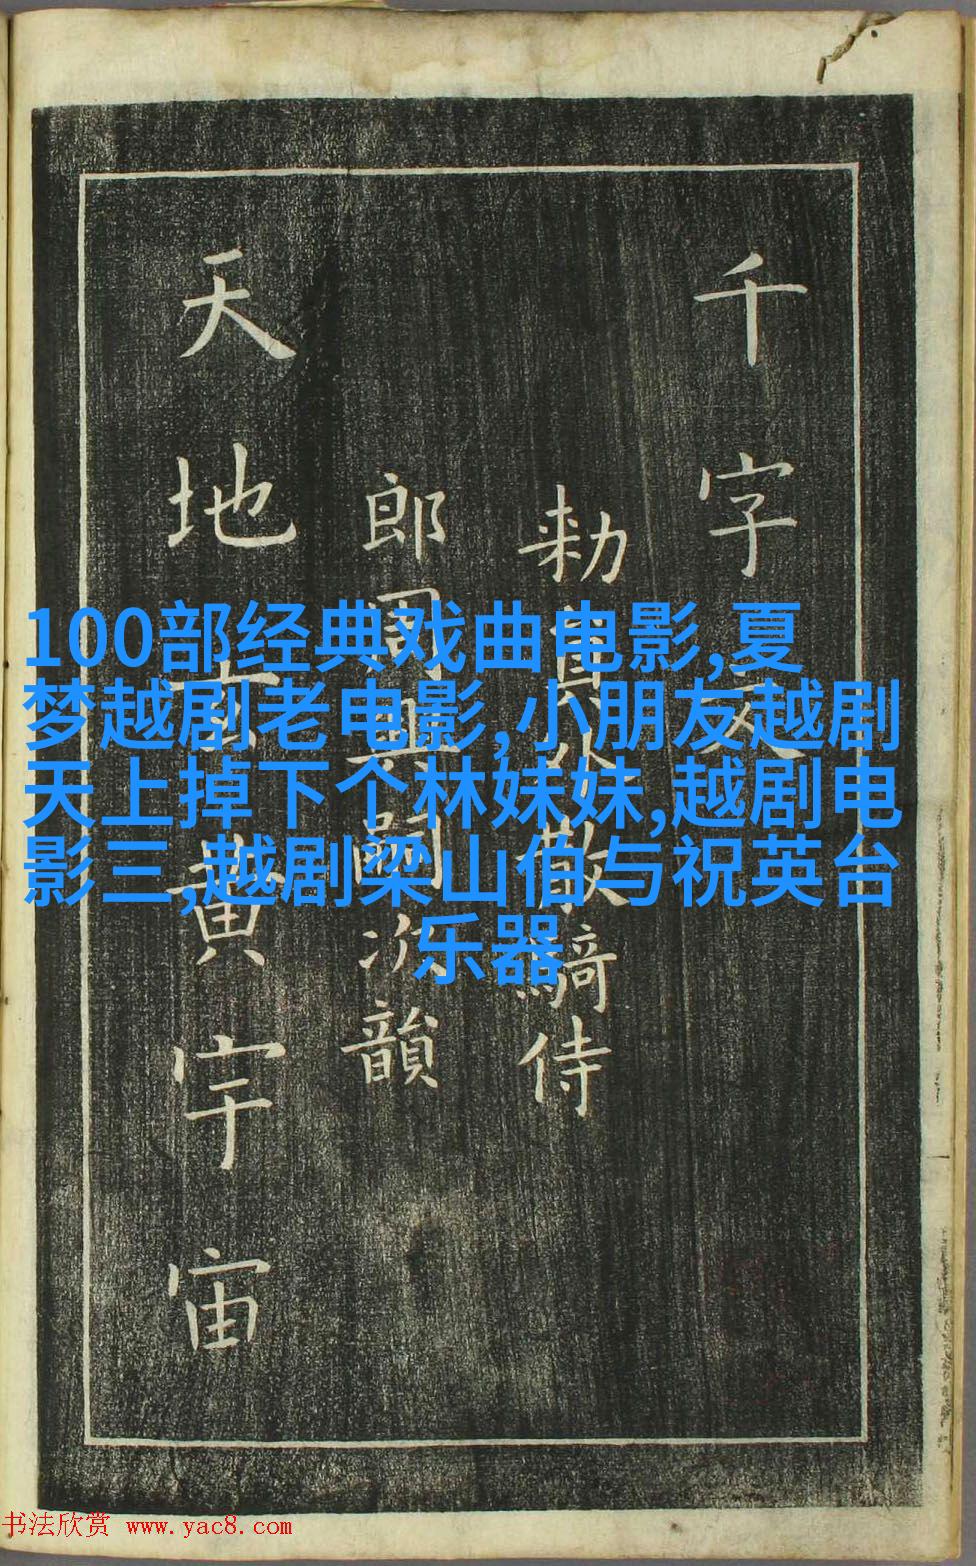 千字文
勑員外散騎侍
郎周興嗣次韻
天地玄黃宇宙
100部经典戏曲电影,夏
梦越剧老电影,小朋友越剧
天上掉下个林妹妹,越剧电
影三,越剧梁山伯与祝英台
乐器
书法欣赏 www.yac8.com